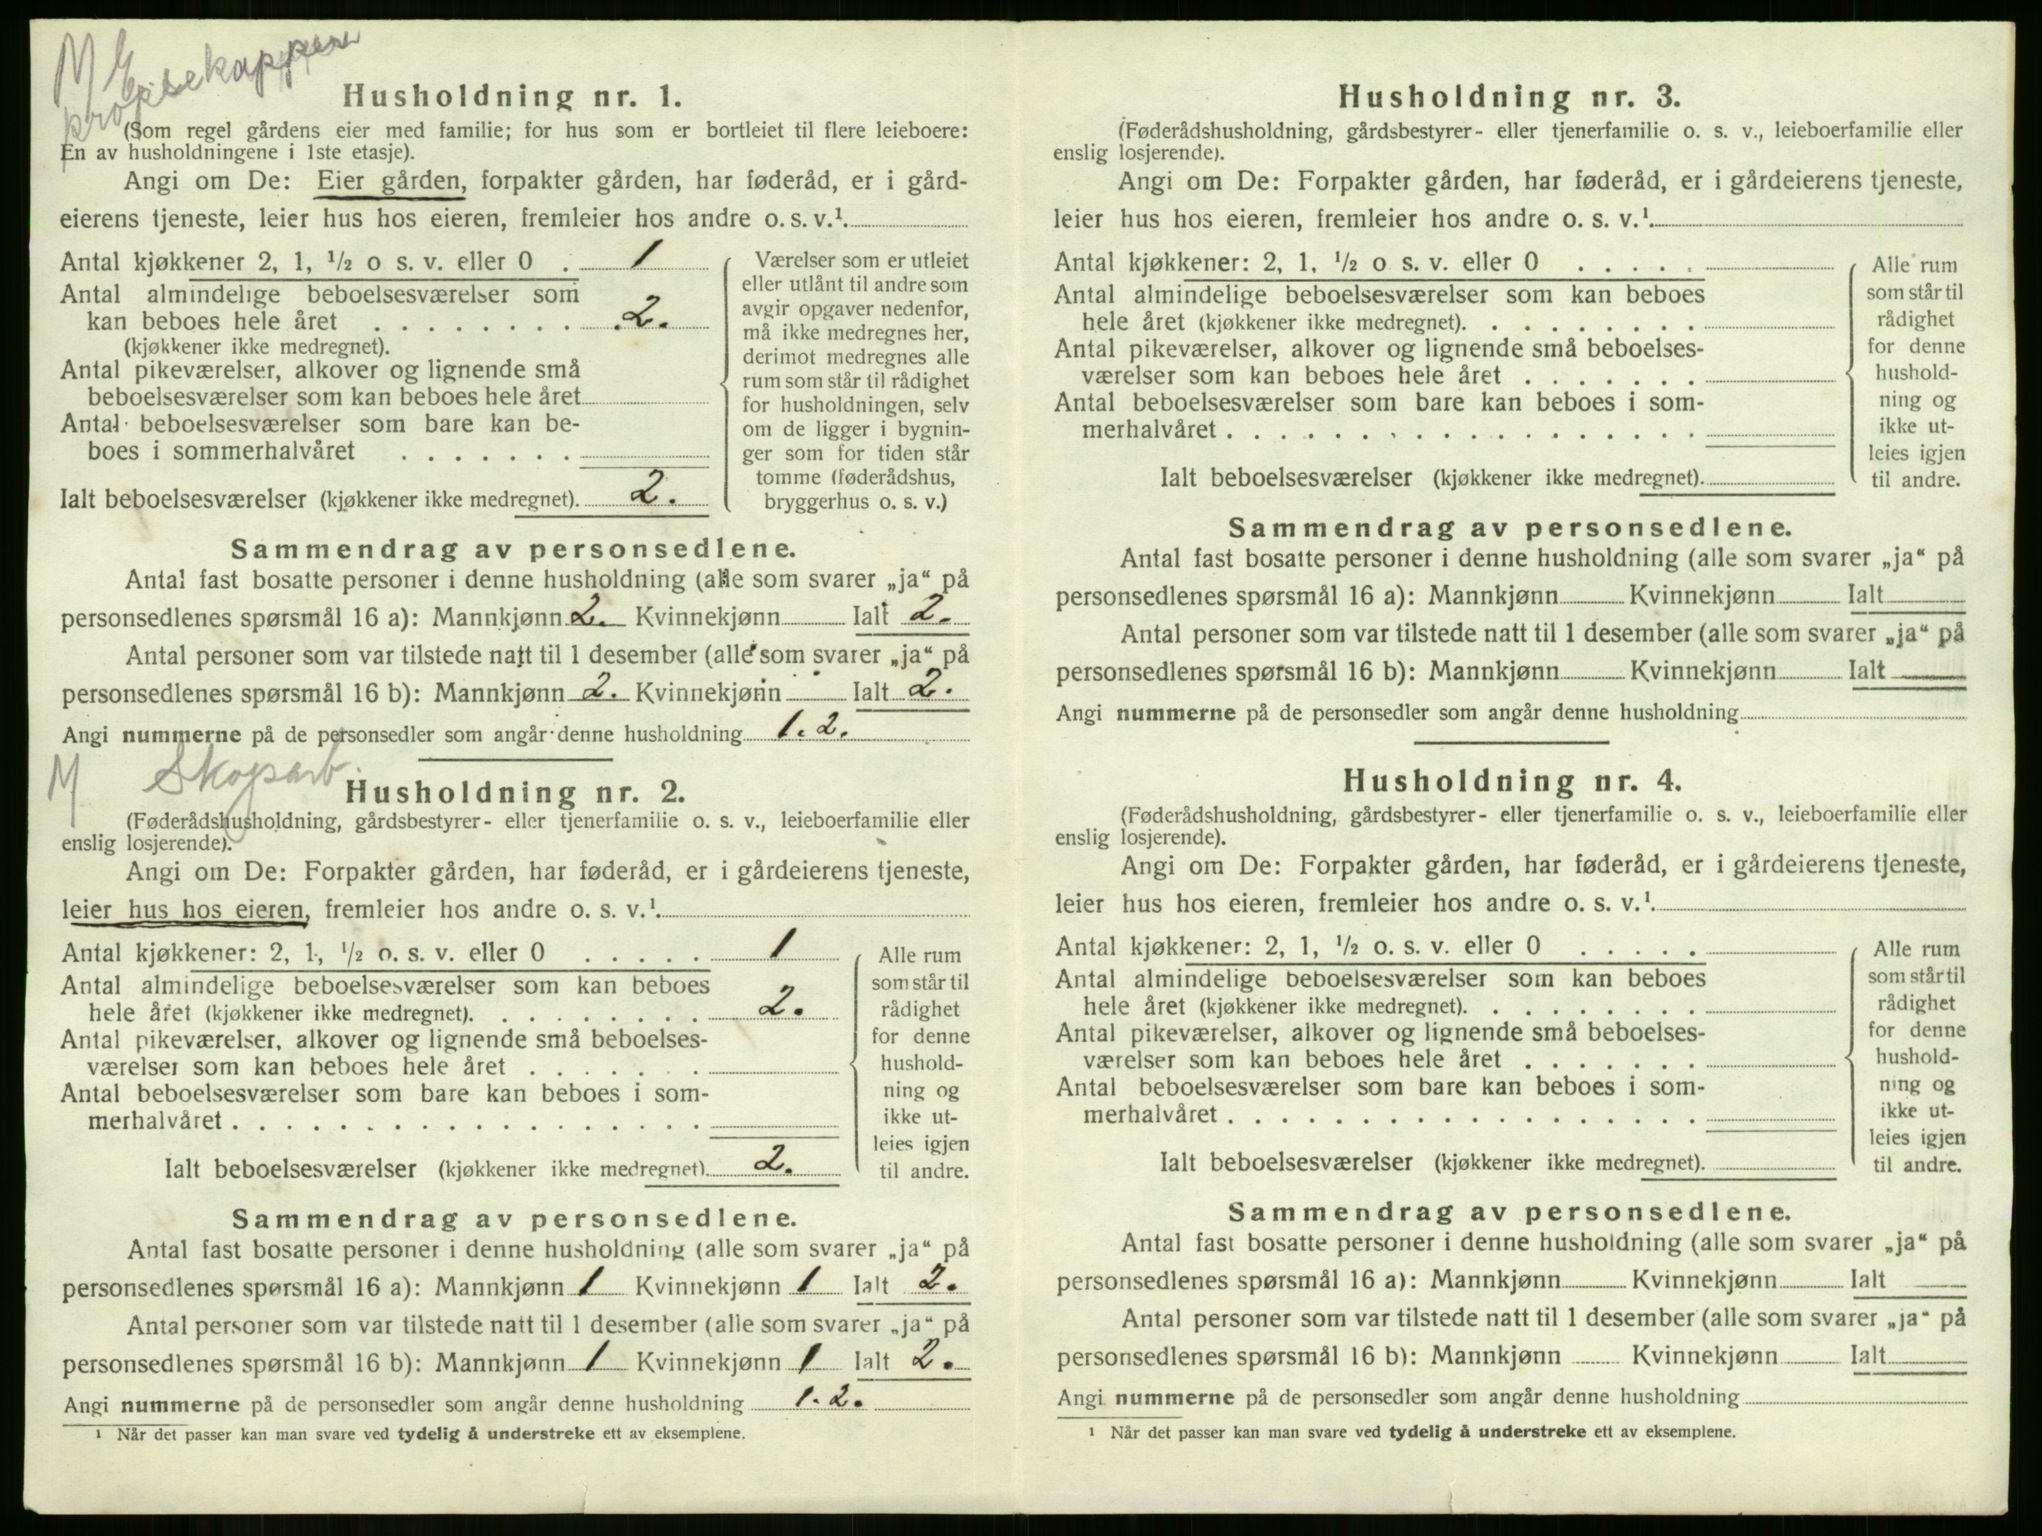 M E
propsekapper
Husholdning nr. 1.
(Som regel gårdens eier med familie; for hus som er bortleiet til flere leieboere:
En av husholdningene i 1ste etasje).
Angi om De: Eier gården, forpakter gården, har føderåd, er i gård-
eierens tjeneste, leier hus hos eieren, fremleier hos andre o. s. v.¹
Antal kjøkkener 2, 1, ½ o s. v. eller 0 . 1
Antal almindelige beboelsesværelser som
kan beboes hele året . . . . . . . . 2.
(kjøkkener ikke medregnet).
Antal pikeværelser, alkover og lignende små
beboelsesværelser som kan beboes hele året
Antal beboelsesværelser som bare kan be-
boes i sommerhalvåret . . . . . . .
Ialt beboelsesværelser (kjøkkener ikke medregnet). 2.
Værelser som er utleiet
eller utlånt til andre som
avgir opgaver nedenfor,
må ikke medregnes her,
derimot medregnes alle
rum som står til rådighet
for husholdningen, selv
om de ligger i bygnin-
ger som for tiden står
tomme (føderådshus,
bryggerhus o. s. v.)
Sammendrag av personsedlene.
Antal fast bosatte personer i denne husholdning (alle som svarer „ja“ på
personsedlenes spørsmål 16 a): Mannkjønn 2. Kvinnekjønn Ialt 2.
Antal personer som var tilstede natt til 1 desember (alle som svarer „ja“ på
personsedlenes spørsmål 16 b): Mannkjønn 2. Kvinnekjønn Ialt 2.
Angi nummerne på de personsedler som angår denne husholdning 1. 2.
M Skogsarb.
Husholdning nr. 2.
(Føderådshusholdning, gårdsbestyrer- eller tjenerfamilie o. s. v., leieboerfamilie eller
enslig losjerende).
Angi om De: Forpakter gården, har føderåd, er i gårdeierens tjeneste,
leier hus hos eieren, fremleier hos andre o. s. v.¹
Antal kjøkkener: 2, 1, ½ o. s. v. eller 0 . . . . . 1
Antal almindelige beboelsesværelser som kan beboes
hele året (kjøkkener ikke medregnet). . . . . . . . . 2.
Antal pikeværelser, alkover og lignende små beboelses-
værelser som kan beboes hele året . . . . . . .
Antal beboelsesværelser som bare kan beboes i som-
merhalvåret . . . . . . . . . . . . . . . . . .
Ialt beboelsesværelser (kjøkkener ikke medregnet) 2.
Alle rum
som står til
rådighet
for denne
hushold-
ning og
ikke ut-
leies igjen
til andre.
Sammendrag av personsedlene.
Antal fast bosatte personer i denne husholdning (alle som svarer „ja“ på
personsedlenes spørsmål 16 a): Mannkjønn 1 Kvinnekjønn 1 Ialt 2.
Antal personer som var tilstede natt til 1 desember (alle som svarer „ja“ på
personsedlenes spørsmål 16 b): Mannkjønn 1 Kvinnekjønn 1 Ialt 2.
Angi nummerne på de personsedler som angår denne husholdning 1. 2.
¹ Når det passer kan man svare ved tydelig å understreke ett av eksemplene.
Husholdning nr. 3.
(Føderådshusholdning, gårdsbestyrer- eller tjenerfamilie o. s. v., leieboerfamilie eller
enslig losjerende).
Angi om De: Forpakter gården, har føderåd, er i gårdeierens tjeneste,
leier hus hos eieren, fremleier hos andre o. s. v.¹
Antal kjøkkener: 2, 1, ½ o s. v. eller 0 . . . . .
Antal almindelige beboelsesværelser som kan beboes
hele året (kjøkkener ikke medregnet). . . . . . . . .
Antal pikeværelser, alkover og lignende små beboelses-
værelser som kan beboes hele året . . . . . . .
Antal beboelsesværelser som bare kan beboes i som-
merhalvåret . . . . . . . . . . . . . . . . . .
Ialt beboelsesværelser (kjøkkener ikke medregnet).
Alle rum
som står til
rådighet
for denne
hushold-
ning og
ikke ut-
leies igjen
til andre.
Sammendrag av personsedlene.
Antal fast bosatte personer i denne husholdning (alle som svarer „ja“ på
personsedlenes spørsmål 16 a): Mannkjønn Kvinnekjønn Ialt
Antal personer som var tilstede natt til 1 desember (alle som svarer „ja“ på
personsedlenes spørsmål 16 b): Mannkjønn Kvinnekjønn Ialt
Angi nummerne på de personsedler som angår denne husholdning
Husholdning nr. 4.
(Føderådshusholdning, gårdsbestyrer- eller tjenerfamilie o. s. v., leieboerfamilie eller
enslig losjerende).
Angi om De: Forpakter gården, har føderåd, er i gårdeierens tjeneste,
leier hus hos eieren, fremleier hos andre o. s. v.¹
Antal kjøkkener: 2, 1, ½ o. s. v. eller 0 . . . . .
Antal almindelige beboelsesværelser som kan beboes
hele året (kjøkkener ikke medregnet). . . . . . . . .
Antal pikeværelser, alkover og lignende små beboelses-
værelser som kan beboes hele året . . . . . . .
Antal beboelsesværelser som bare kan beboes i som-
merhalvåret . . . . . . . . . . . . . . . . . .
Ialt beboelsesværelser (kjøkkener ikke medregnet).
Alle rum
som står til
rådighet
for denne
hushold-
ning og
ikke ut-
leies igjen
til andre.
Sammendrag av personsedlene.
Antal fast bosatte personer i denne husholdning (alle som svarer „ja“ på
personsedlenes spørsmål 16 a): Mannkjønn Kvinnekjønn Ialt
Antal personer som var tilstede natt til 1 desember (alle som svarer „ja“ på
personsedlenes spørsmål 16 b): Mannkjønn Kvinnekjønn Ialt
Angi nummerne på de personsedler som angår denne husholdning
¹ Når det passer kan man svare ved tydelig å understreke ett av eksemplene.